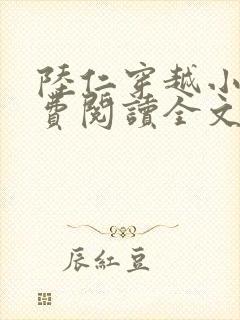 陸仁穿越小
費閱讀全文
辰紅豆